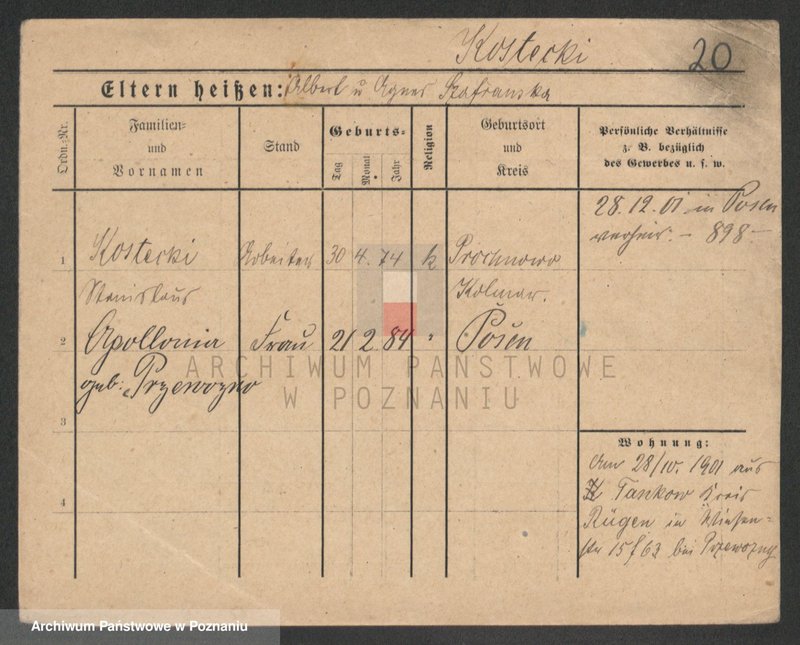 Kostecki 20
Eltern heißen: Albert u Agnes Szafranska
Ordn.-Nr.
Familien- und Vornamen
Stand
Geburts-
Tag Monat Jahr
Religion
Geburtsort und Kreis
Persönliche Verhältnisse
z. B. bezüglich
des Gewerbes u. s. w.
28. 12. 01 in Posen
verheir. - 898 -
1 Kostecki Arbeiter 30 4. 74 k Prochnowo
Stanislaus Kolmar.
2 Apollonia Frau 21 2 84 " Posen
geb: Przewozno
3
4
Wohnung:
Am 28/IV. 1901 aus
Tankow Kreis
Rügen in Wiesen=
str 15 f 63 bei Przewozny
ARCHIWUM PAŃSTWOWE
W POZNANIU
Archiwum Państwowe w Poznaniu